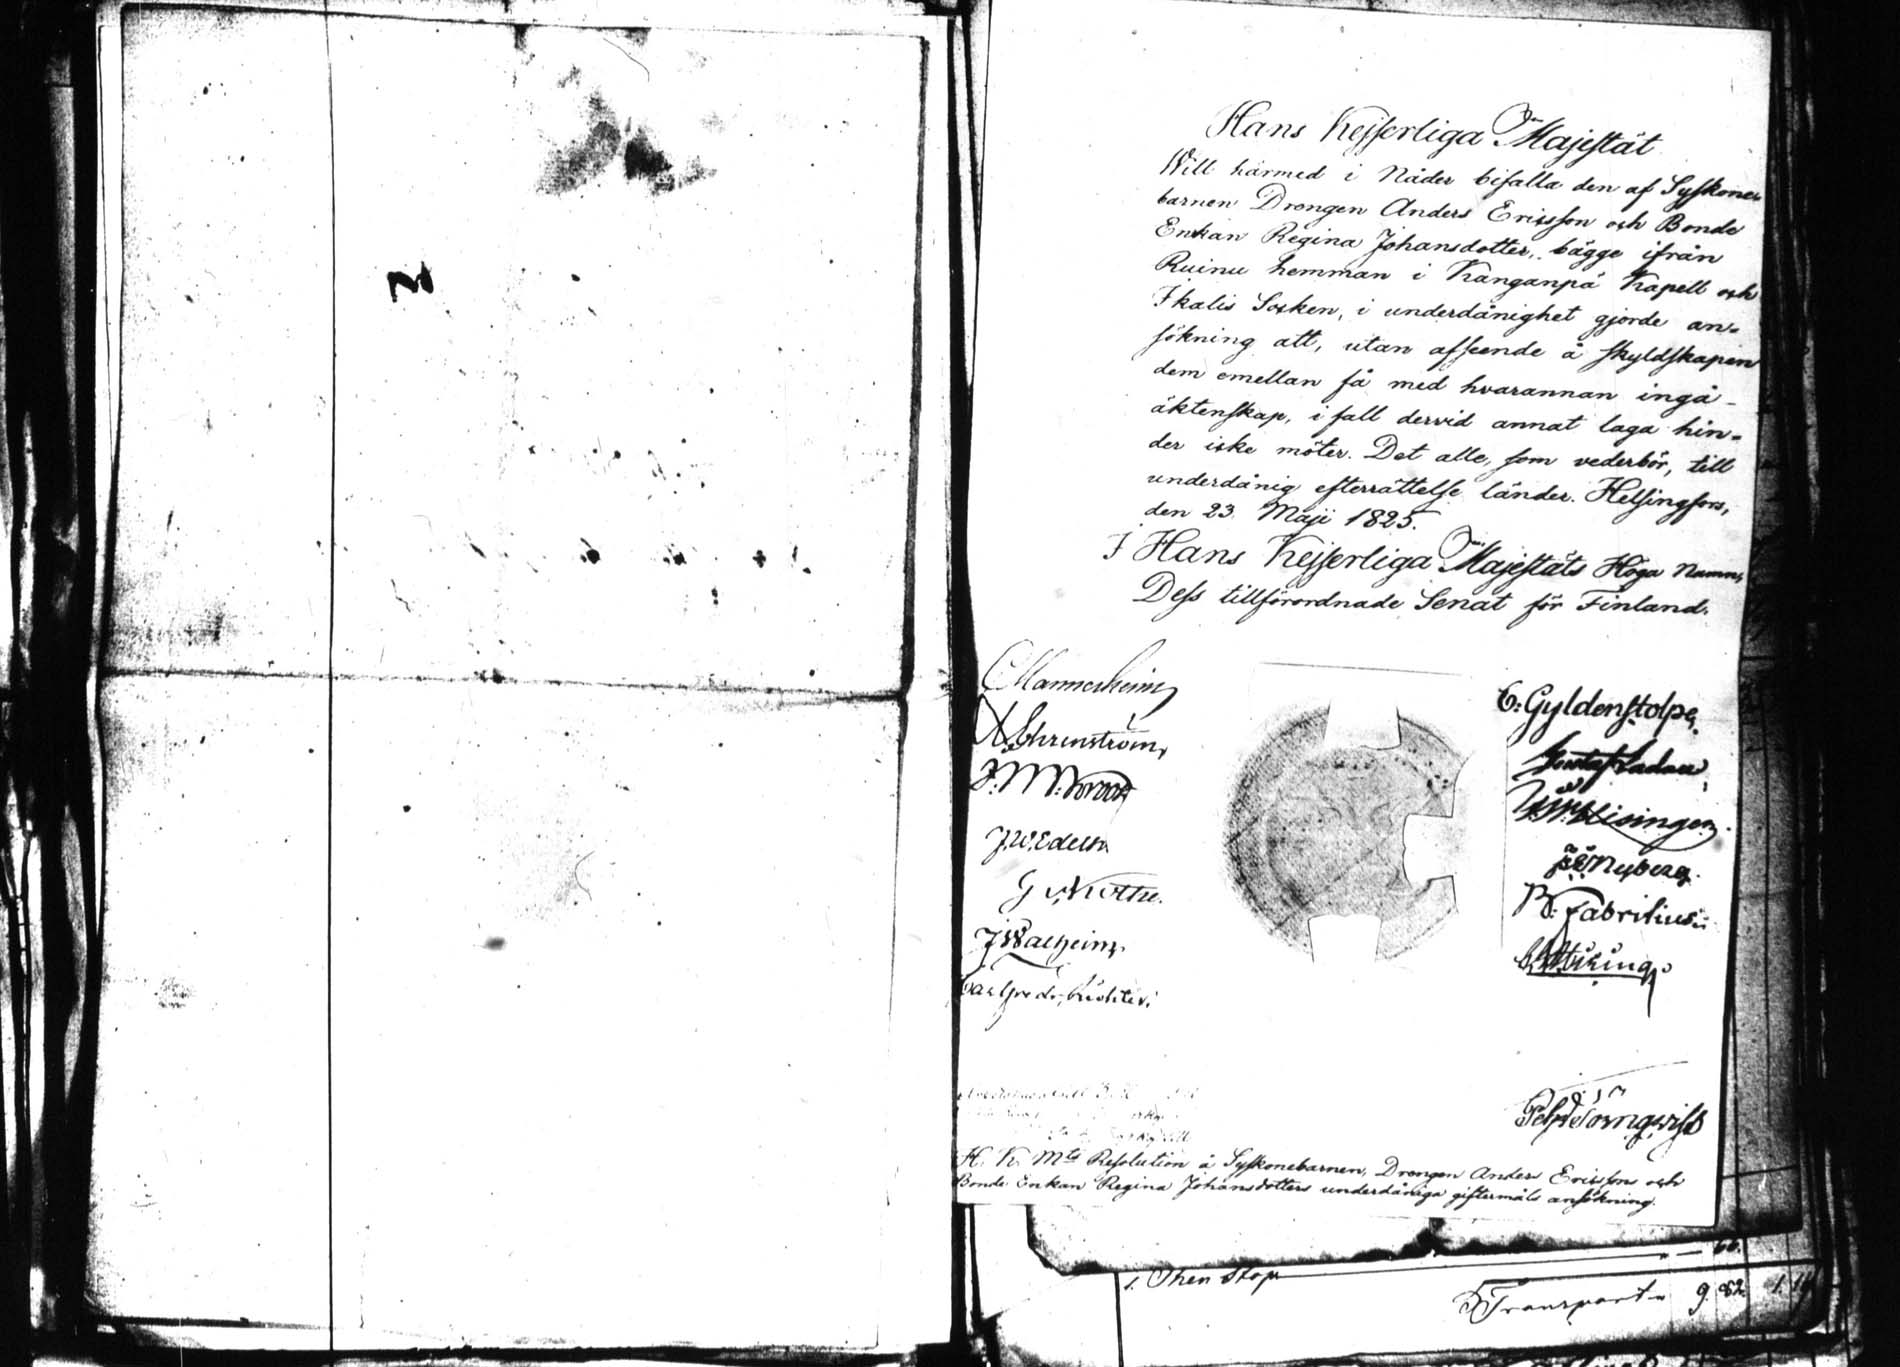 Hans Kejserliga Majestät
Will härmed i Nåder bifalla den af Syskone-
barnen Drengen Anders Ericsson och Bonde
Enkan Regina Johansdotter, bägge ifrån
Ruinu hemman i Kanganpä Kapell och
Ikalis Socken, i underdånighet gjorde an-
sökning att, utan afseende å skyldskapen
dem emellan få med hvarannan ingå
äktenskap, i fall dervid annat laga hin-
der icke möter. Det alle, som vederbör, till
underdånig efterrättelse länder. Helsingfors,
den 23. Maji 1825.
I Hans Kejserliga Majestäts Höga Namn,
Dess tillförordnade Senat för Finland.
C Mannerheim
Ehrenström
C: Gyldenstolpe
Gustaf Ladau
Hisinger
Nyberg
B: Fabritius
J Walheim
Törnqvist
H. K. Mts Resolution å Syskonebarnen, Drengen Anders Ericssons och
Bonde Enkan Regina Johansdotters underdåniga giftermåls ansökning.
Transport 9